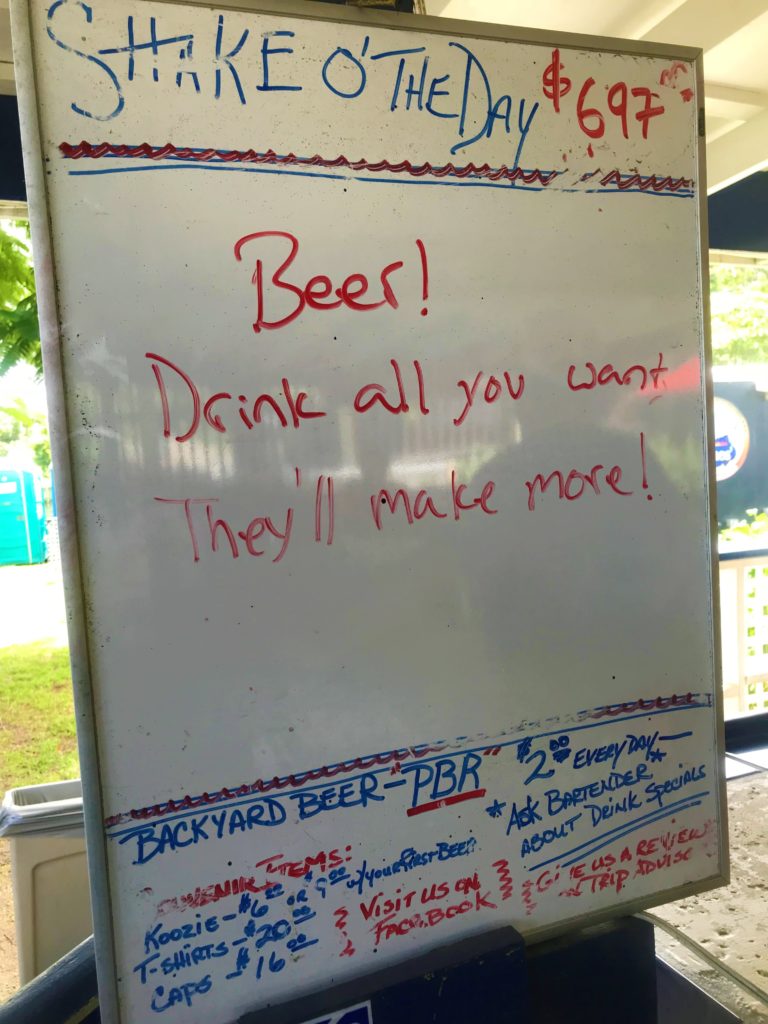 SHAKE O' THE DAY $697
Beer!
Drink all you want
They'll make more!
BACKYARD BEER - "PBR" $2.00 EVERYDAY —
*ASK BARTENDER*
ABOUT DRINK SPECIALS
SOUVENIR ITEMS:
KOOZIE - $6.00 OR $9.00 w/YOUR FIRST BEER
T-SHIRTS - $20.00
CAPS - $16.00
VISIT US ON
FACEBOOK
GIVE US A REVIEW
TRIP ADVISE